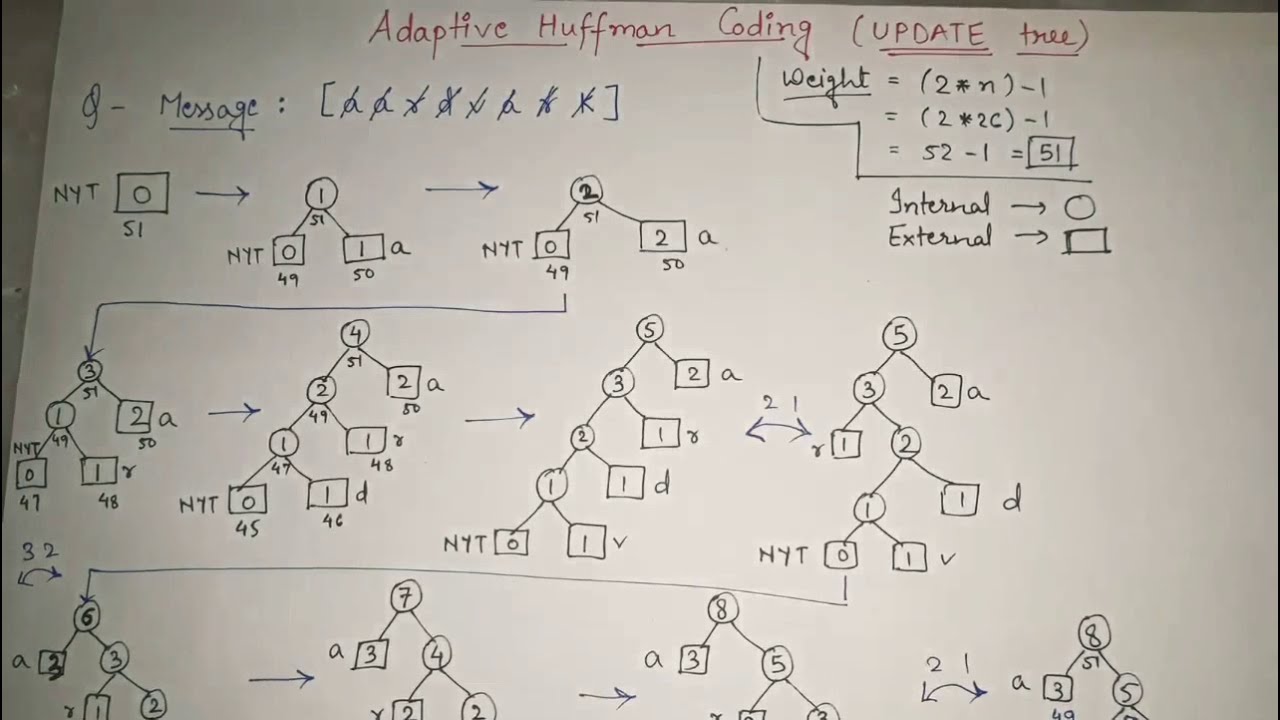 Adaptive Huffman Coding (UPDATE tree)
Q- Message : [a a r d v a r k]
Weight = (2*n)-1
= (2*26)-1
= 52-1 = 51
Internal → ○
External → □
NYT 0 → 1 → 2
51 51 51
NYT 0 1 a NYT 0 2 a
49 50 49 50
3 4 5 5
51 51
1 2 a 2 2 a 3 2 a 3 2 a
49 50 49 50
2 1
NYT 0 1 r 1 1 r 2 1 r r 1 2
47 48 47 48
NYT 0 1 d 1 1 d 1 1 d
45 46
NYT 0 1 v NYT 0 1 v
3 2
6 7 8 8
51
a 3 a 3 4 a 3 5 2 1 a 3 5
49
r 1 2 r 2 2 r 3